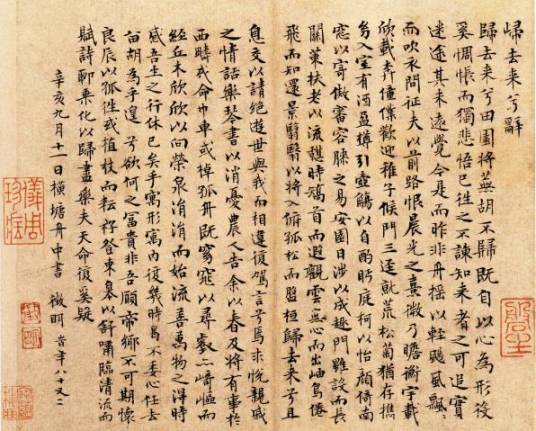 歸去来兮辭
歸去来兮田園将蕪胡不歸既自以心為形役
奚惆悵而獨悲悟已往之不諫知来者之可追實
迷途其未遠覺今是而昨非舟摇以輕颺風飄〻
而吹衣問征夫以前路恨晨光之熹微乃瞻衡宇載
欣載奔僮僕歡迎稚子候門三逕就荒松菊猶存携
幼入室有酒盈罇引壺觴以自酌眄庭柯以怡顔倚南
窓以寄傲審容膝之易安園日涉以成趣門雖設而長
關策扶老以流憩時矯首而遐觀雲無心而出岫鳥倦
飛而知還景翳翳以将入撫孤松而盤桓歸去来兮且
息交以請絶遊世與我而相違復駕言兮焉求悦親戚
之情話樂琴書以消憂農人告余以春及将有事於
西疇或命巾車或棹孤舟既窈窕以尋壑亦崎嶇而
經丘木欣欣以向榮泉涓涓而始流善萬物之得時
感吾生之行休已矣乎寓形寓内復幾時曷不委心任去
留胡為乎遑〻兮欲何之冨貴非吾願帝鄉不可期懐
良辰以孤往或植杖而耘耔登東皋以舒嘯臨清流而
賦詩聊乗化以歸盡樂夫天命復奚疑
辛亥九月十一日横塘舟中書 徵明 時年八十又二